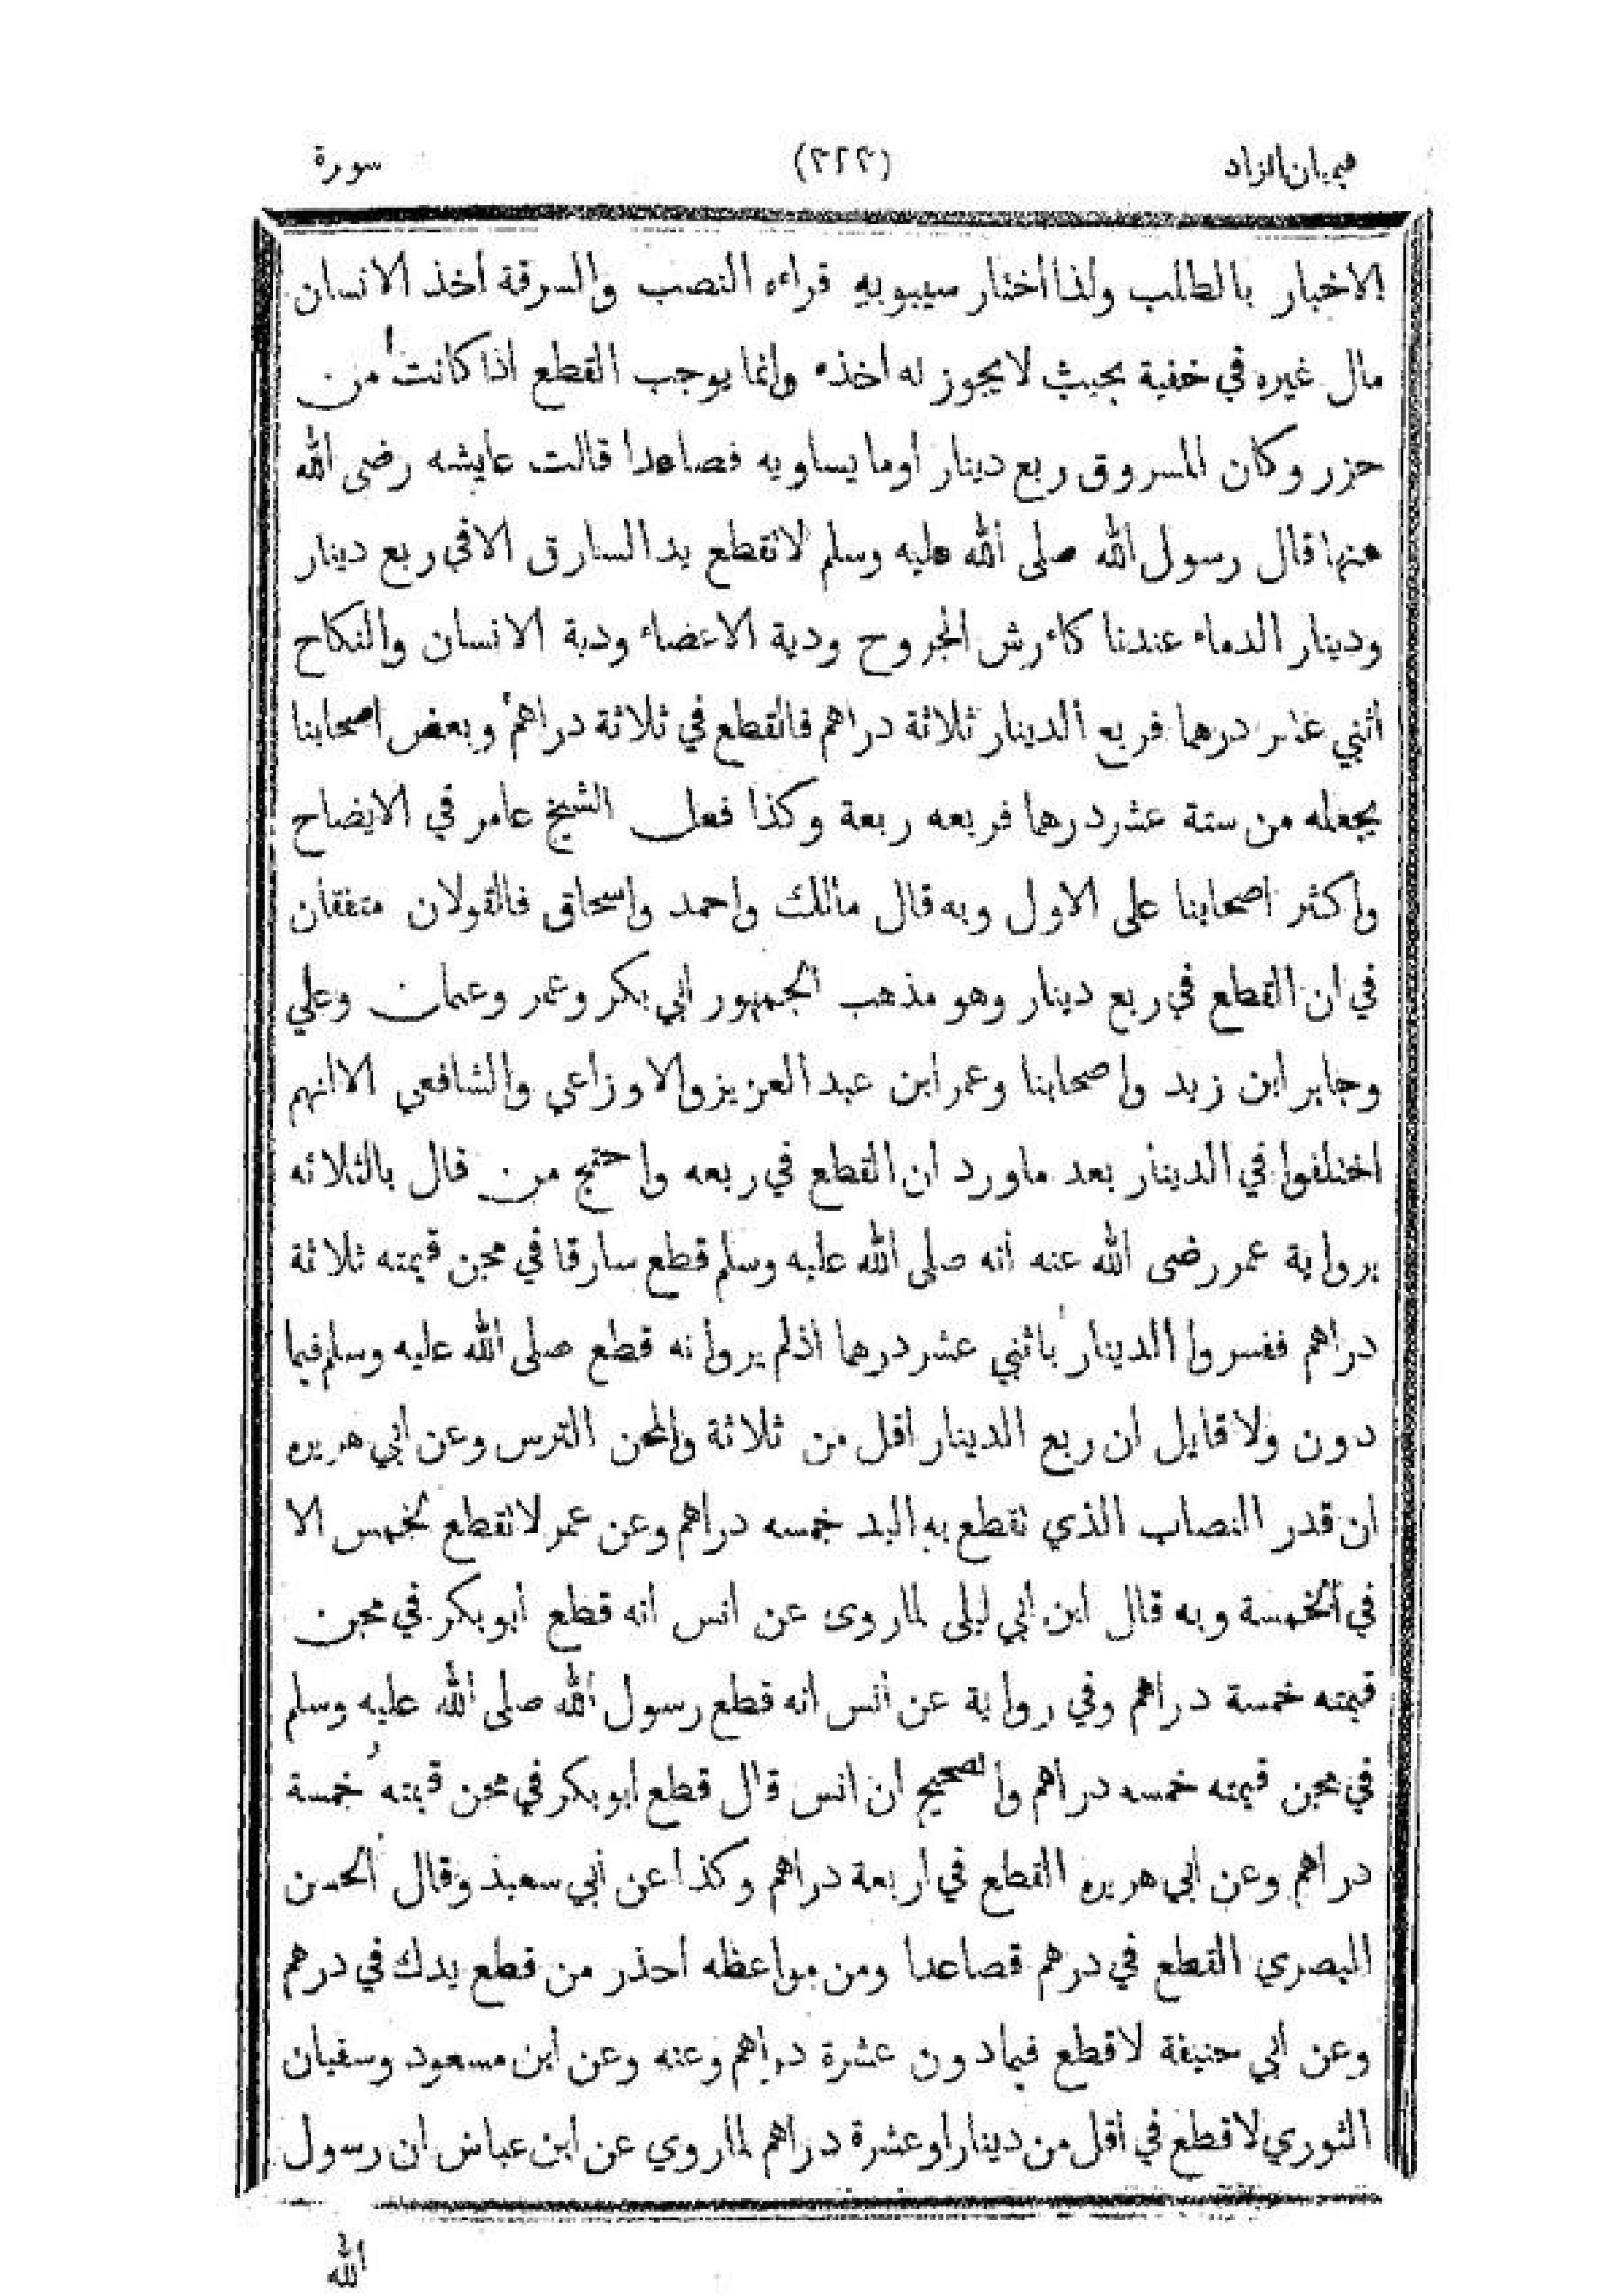 هيميان الزاد (٢٢٢) سورة
الاخبار بالطلب ولذا اختار سيبويه قراءه النصب والسرقة اخذ الانسان
مال غيره في خفية بحيث لا يجوز له اخذه وانما يوجب القطع اذا كانت من
حزر وكان المسروق ربع دينار اوما يساويه فصاعدا قالت عايشه رضى الله
عنها قال رسول الله صلى الله عليه وسلم لا تقطع يد السارق الا في ربع دينار
ودينار الدماء عندنا كاءرش الجروح ودية الاعضاء ودية الانسان والنكاح
اثني عشر درهما فربع الدينار ثلاثة دراهم فالقطع في ثلاثة دراهم وبعض اصحابنا
يجعله من ستة عشر درهما فربعه ربعة وكذا فعل الشيخ عامر في الايضاح
واكثر اصحابنا على الاول وبه قال مالك واحمد واسحاق فالقولان متفقان
في ان القطع في ربع دينار وهو مذهب الجمهور ابي بكر وعمر وعثمان وعلي
وجابر ابن زيد واصحابنا وعمر ابن عبد العزيز والاوزاعي والشافعي الا انهم
اختلفوا في الدينار بعد ماورد ان القطع في ربعه واحتج من قال بالثلاثه
برواية عمر رضى الله عنه انه صلى الله عليه وسلم قطع سارقا في مجن قيمته ثلاثة
دراهم ففسروا الدينار باثني عشر درهما اذلم يروا نه قطع صلى الله عليه وسلم فيما
دون ولا قايل ان ربع الدينار اقل من ثلاثة والمجن الترس وعن ابي هريره
ان قدر النصاب الذي تقطع به اليد خمسه دراهم وعن عمر لا تقطع لخمس الا
في الخمسة وبه قال ابن ابي ليلى لما روى عن انس انه قطع ابو بكر في مجن
قيمته خمسة دراهم وفي رواية عن انس انه قطع رسول الله صلى الله عليه وسلم
في مجن قيمته خمسه دراهم والصحيح ان انس قال قطع ابو بكر في مجن قيمته خمسة
دراهم وعن ابي هريره القطع في اربعة دراهم وكذا عن ابي سعيد وقال الحسن
البصري القطع في درهم فصاعدا ومن مواعظه احذر من قطع يدك في درهم
وعن ابي حنيفة لا قطع فيما دون عشرة دراهم وعنه وعن ابن مسعود وسفيان
الثوري لا قطع في اقل من دينار او عشرة دراهم لما روي عن ابن عباس ان رسول
الله